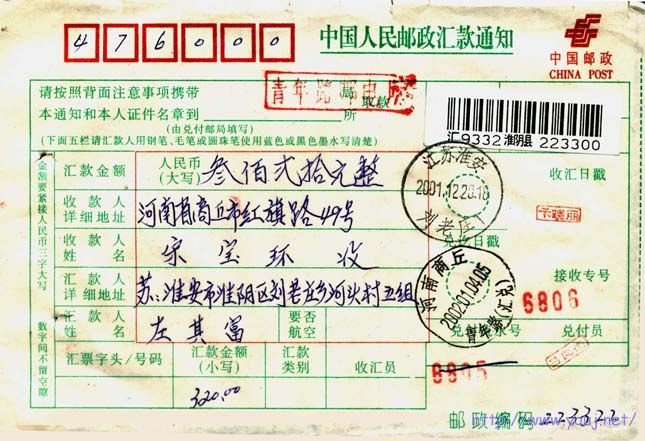 476000
中国人民邮政汇款通知
中国邮政
CHINA POST
请按照背面注意事项携带
本通知和本人证件名章到 局所 取款
青年路邮电所
(由兑付邮局填写)
(下面五栏请汇款人用钢笔、毛笔或圆珠笔使用蓝色或黑色墨水写清楚)
汇9332 淮阴县 223300
金额要紧接人民币三字大写
数字间不留空隙
汇款金额 人民币(大写) 叁佰贰拾元整
收汇日戳
江苏淮安
2001.12.28.16
刘老庄
收款人详细地址 河南省商丘市红旗路49号
收款人姓名 宋宝环 收
兑付日戳
汇款人详细地址 苏、淮安市淮阴区刘老庄乡河头村五组
接收专号
6806
河南商丘
2002010405
青年路(汇兑)
汇款人姓名 左其富
要否航空
兑付员
汇票字头/号码
汇款金额(小写)
汇款类别
收汇员
6805
320.00
邮政编码 223322
http://www.youj.net/